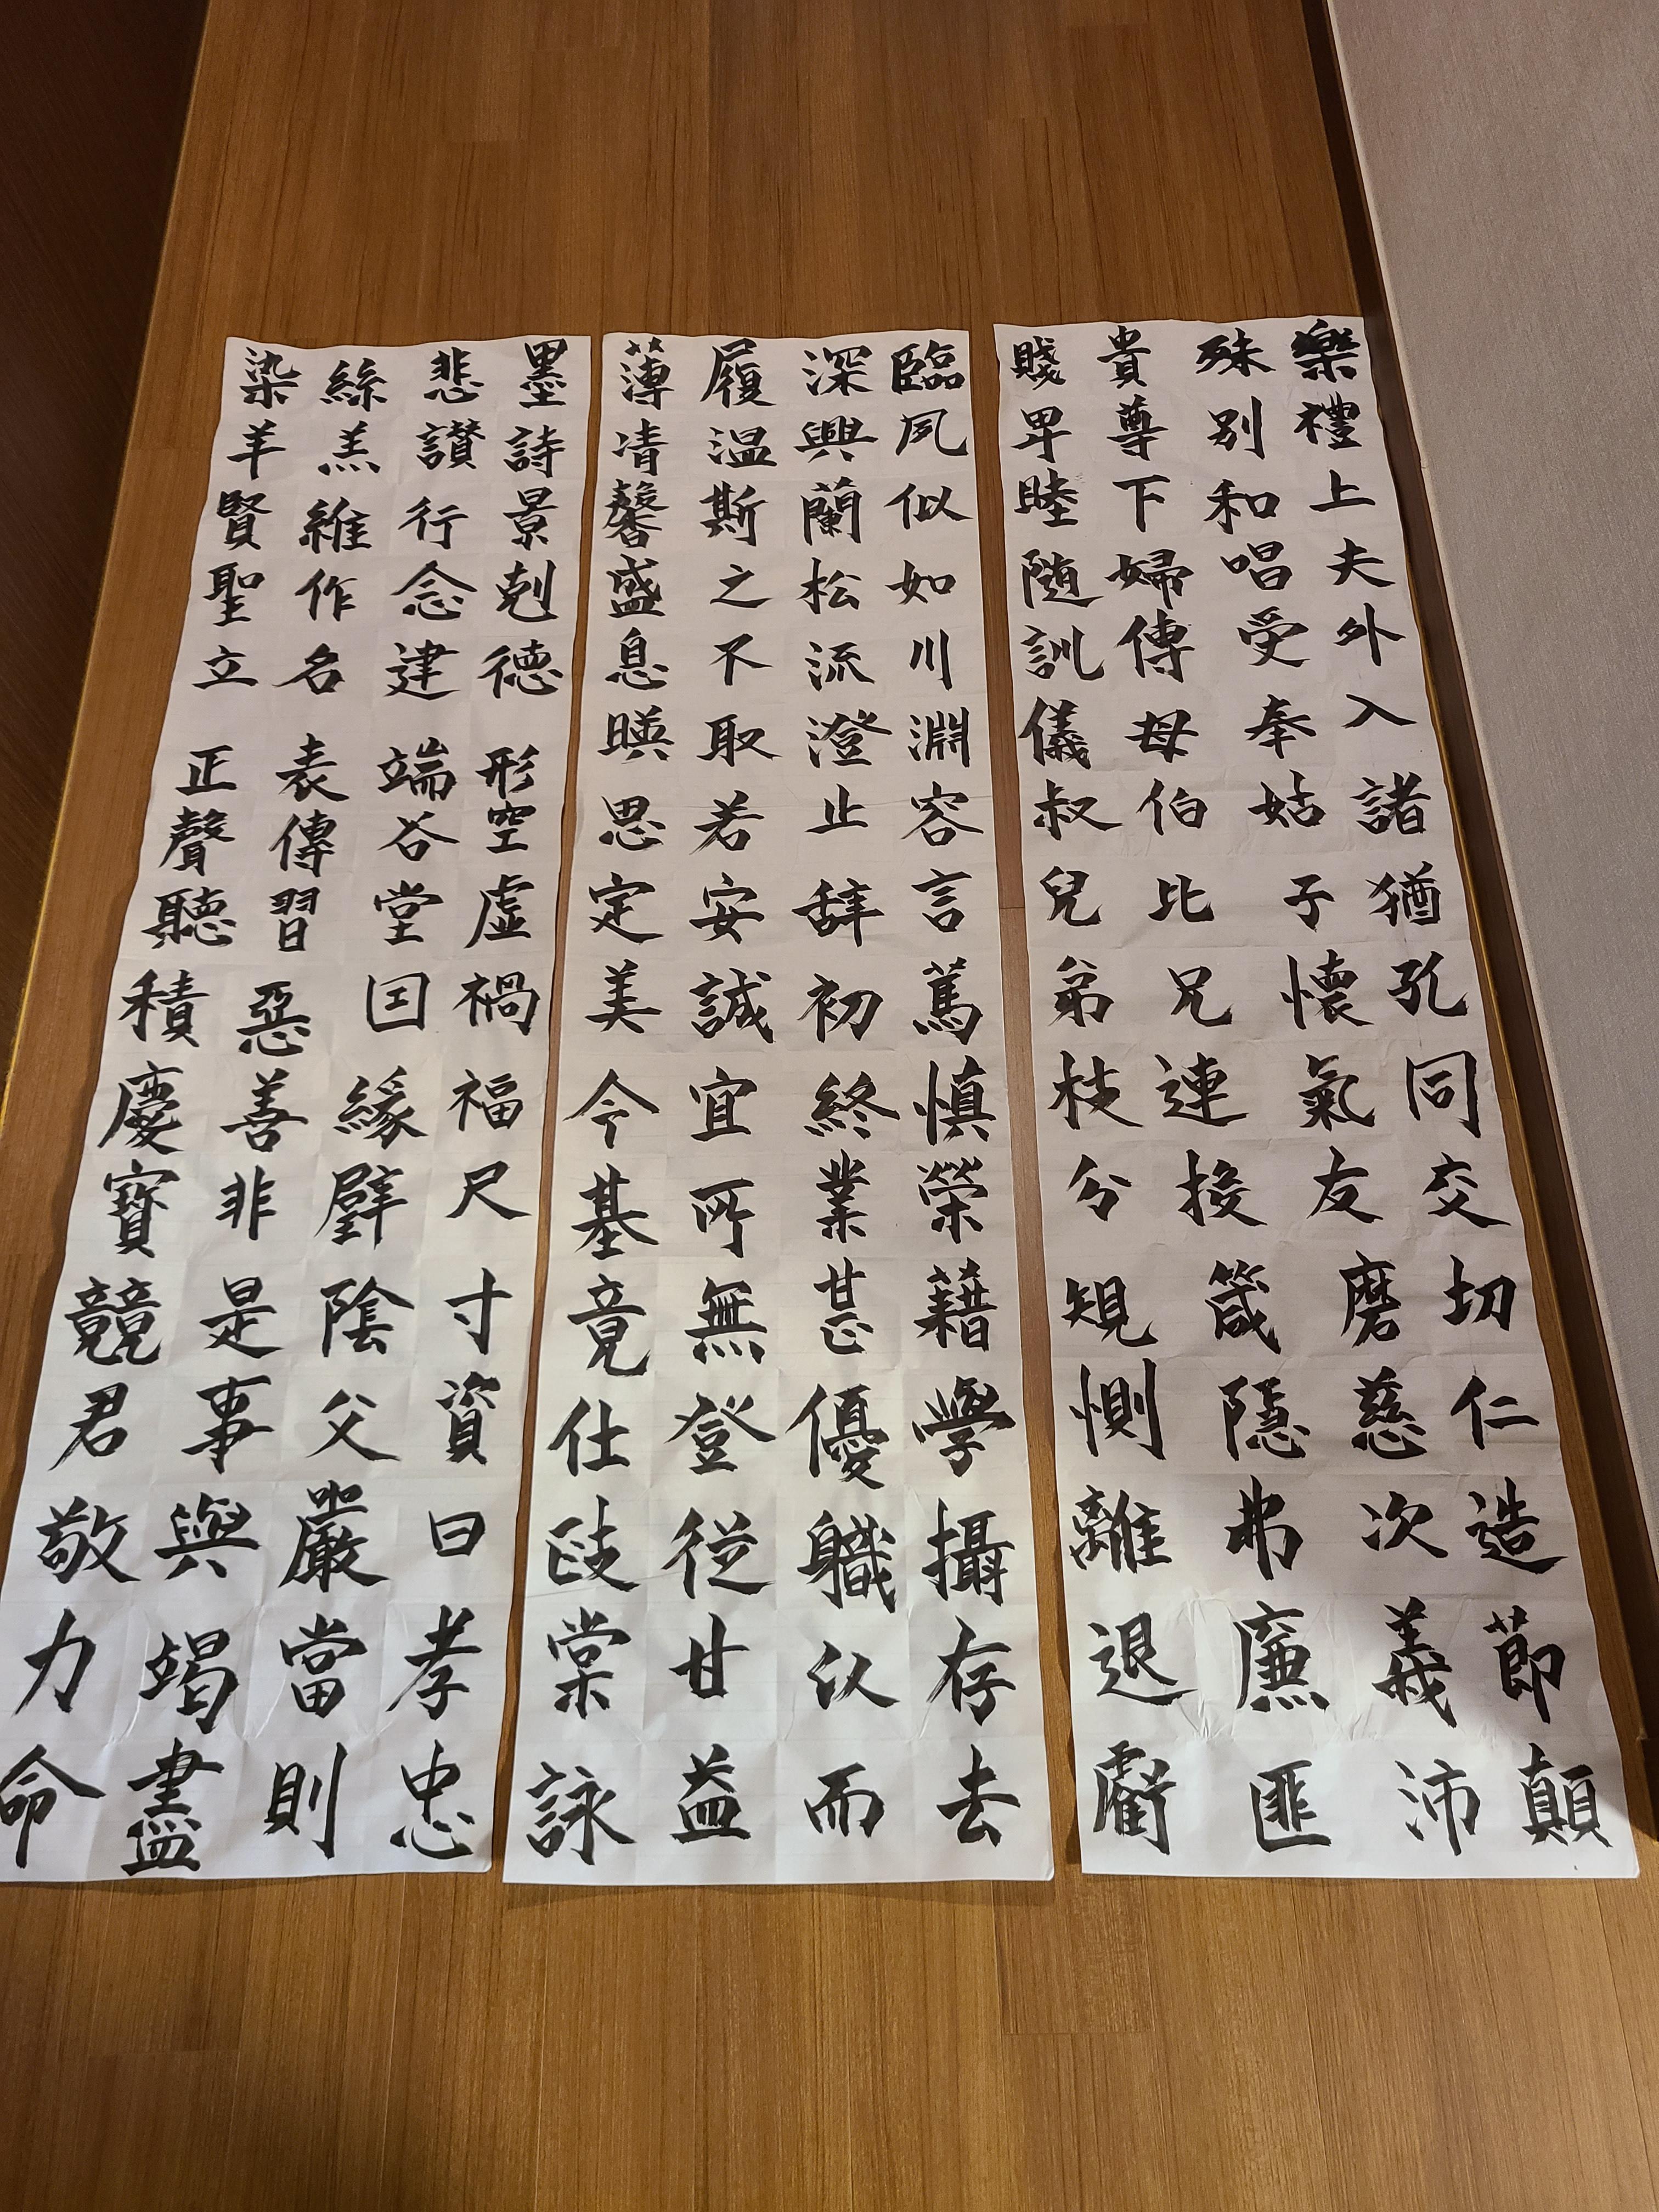 墨悲絲染
詩讃羔羊
景行維賢
剋念作聖
徳建名立
形端表正
空谷傳聲
虛堂習聽
禍因惡積
福緣善慶
尺璧非寶
寸陰是競
資父事君
曰嚴與敬
孝當竭力
忠則盡命
臨深履薄
夙興温凊
似蘭斯馨
如松之盛
川流不息
淵澄取暎
容止若思
言辞安定
篤初誠美
慎終宜令
榮業所基
藉甚無竟
學優登仕
攝職従政
存以甘棠
去而益詠
樂殊貴賤
禮別尊卑
上和下睦
夫唱婦随
外受傅訓
入奉母儀
諸姑伯叔
猶子比兒
孔懷兄弟
同氣連枝
交友投分
切磨箴規
仁慈隱惻
造次弗離
節義廉退
顛沛匪虧